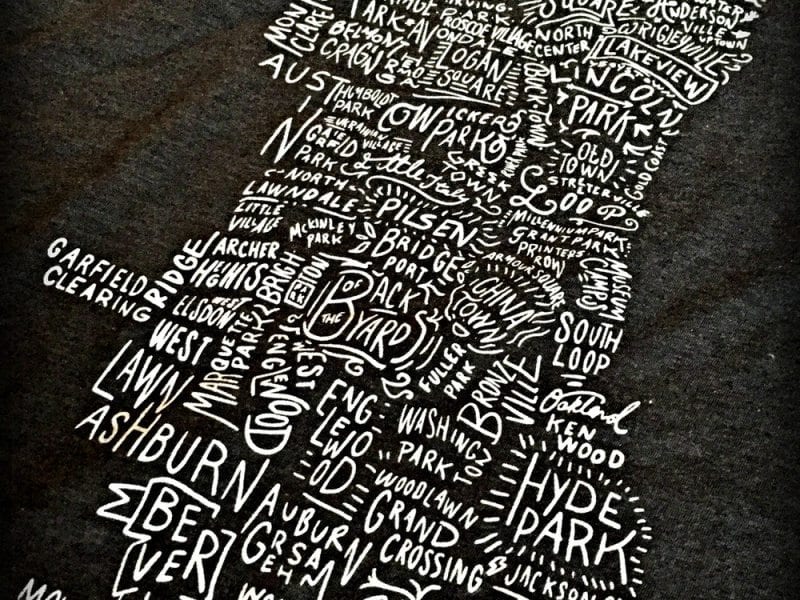 MONT
CLARE
PARK
BELMONT
CRAGN
AVONDALE
ROSCOE VILLAGE
PARK
LOGAN
SQUARE
SQUARE
NORTH
CENTER
WRIGLEYVILLE
ANDERSON
VILLE
UPTOWN
LAKEVIEW
AUSTIN
HUMBOLDT
PARK
WICKER
PARK
BUCKTOWN
LINCOLN
PARK
UKRAINIAN
VILLAGE
GARFIELD
PARK
Little Italy
GREEK
TOWN
OLD
TOWN
GOLD COAST
STREETERVILLE
LOOP
NORTH
LAWNDALE
LITTLE
VILLAGE
MCKINLEY
PARK
PILSEN
BRIDGE
PORT
MILLENNIUM PARK
GRANT PARK
PRINTERS
ROW
ARMOUR SQUARE
MUSEUM
CAMPUS
GARFIELD
RIDGE
CLEARING
ARCHER
HEIGHTS
BRIGHTON
PARK
WEST
ELSDON
BACK
OF
THE
YARD
CHINA
TOWN
SOUTH
LOOP
WEST
LAWN
MARQUETTE
PARK
WEST
ENGLEWOOD
FULLER
PARK
BRONZE
VILLE
Oakland
KEN
WOOD
ASHBURN
ENG
LEWO
OD
WASHINGTON
PARK
WOODLAWN
HYDE
PARK
BE
VER
AUBURN
GRESHAM
GRAND
CROSSING
JACKSON